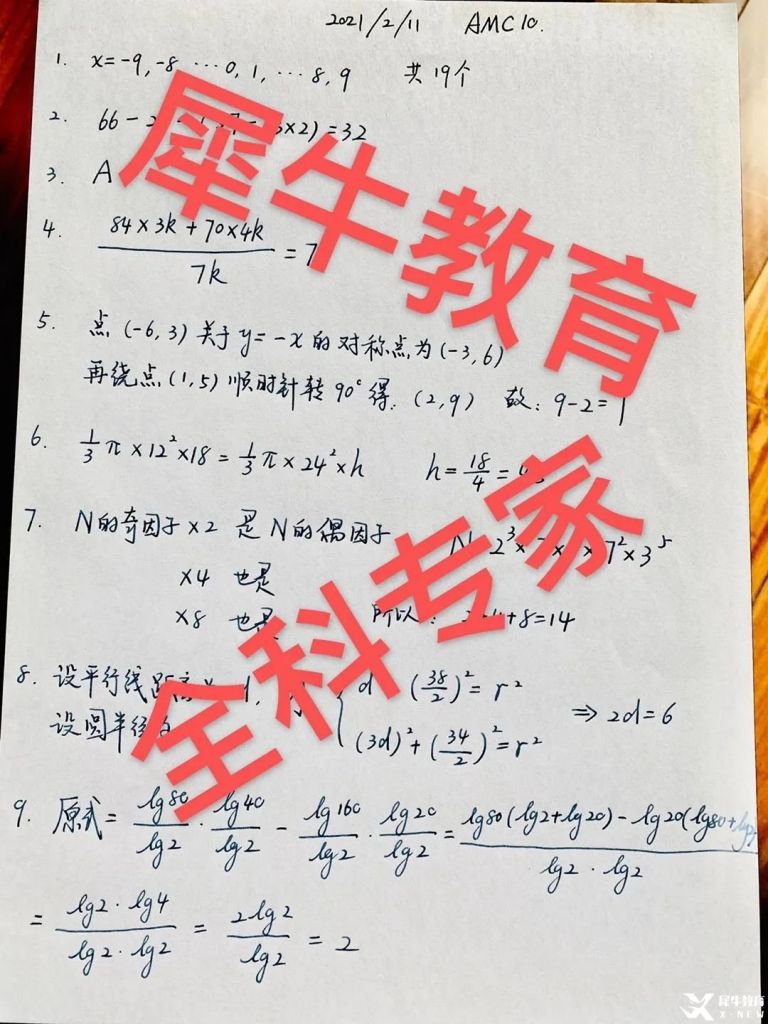 2021/2/11 AMC10.
1. x=-9,-8 … 0, 1, … 8, 9 共19个
2. 66 - 2 ×2) = 32
3. A
4. 84×3k + 70×4k
7k
= 7
5. 点 (-6,3) 关于 y=-x 的对称点为 (-3,6)
再绕点 (1,5) 顺时针转 90° 得: (2,9) 故: 9-2=
6. 1/3 π×12²×18 = 1/3 π×24²×h h = 18/4 = 4
7. N的奇因子×2 是N的偶因子
N 2³× × ×7²×3⁵
×4 也是
×8 也是 所以: +8=14
8. 设平行线 d (38/2)² = r²
设圆半径 (3d)² + (34/2)² = r² ⇒ 2d=6
9. 原式 = lg80/lg2 · lg40/lg2 - lg160/lg2 · lg20/lg2 = lg80(lg2+lg20) - lg20(lg80+lg2
lg2 · lg2
= lg2·lg4/lg2·lg2 = 2lg2/lg2 = 2
犀牛教育
全科专家
犀牛教育
X-NEW